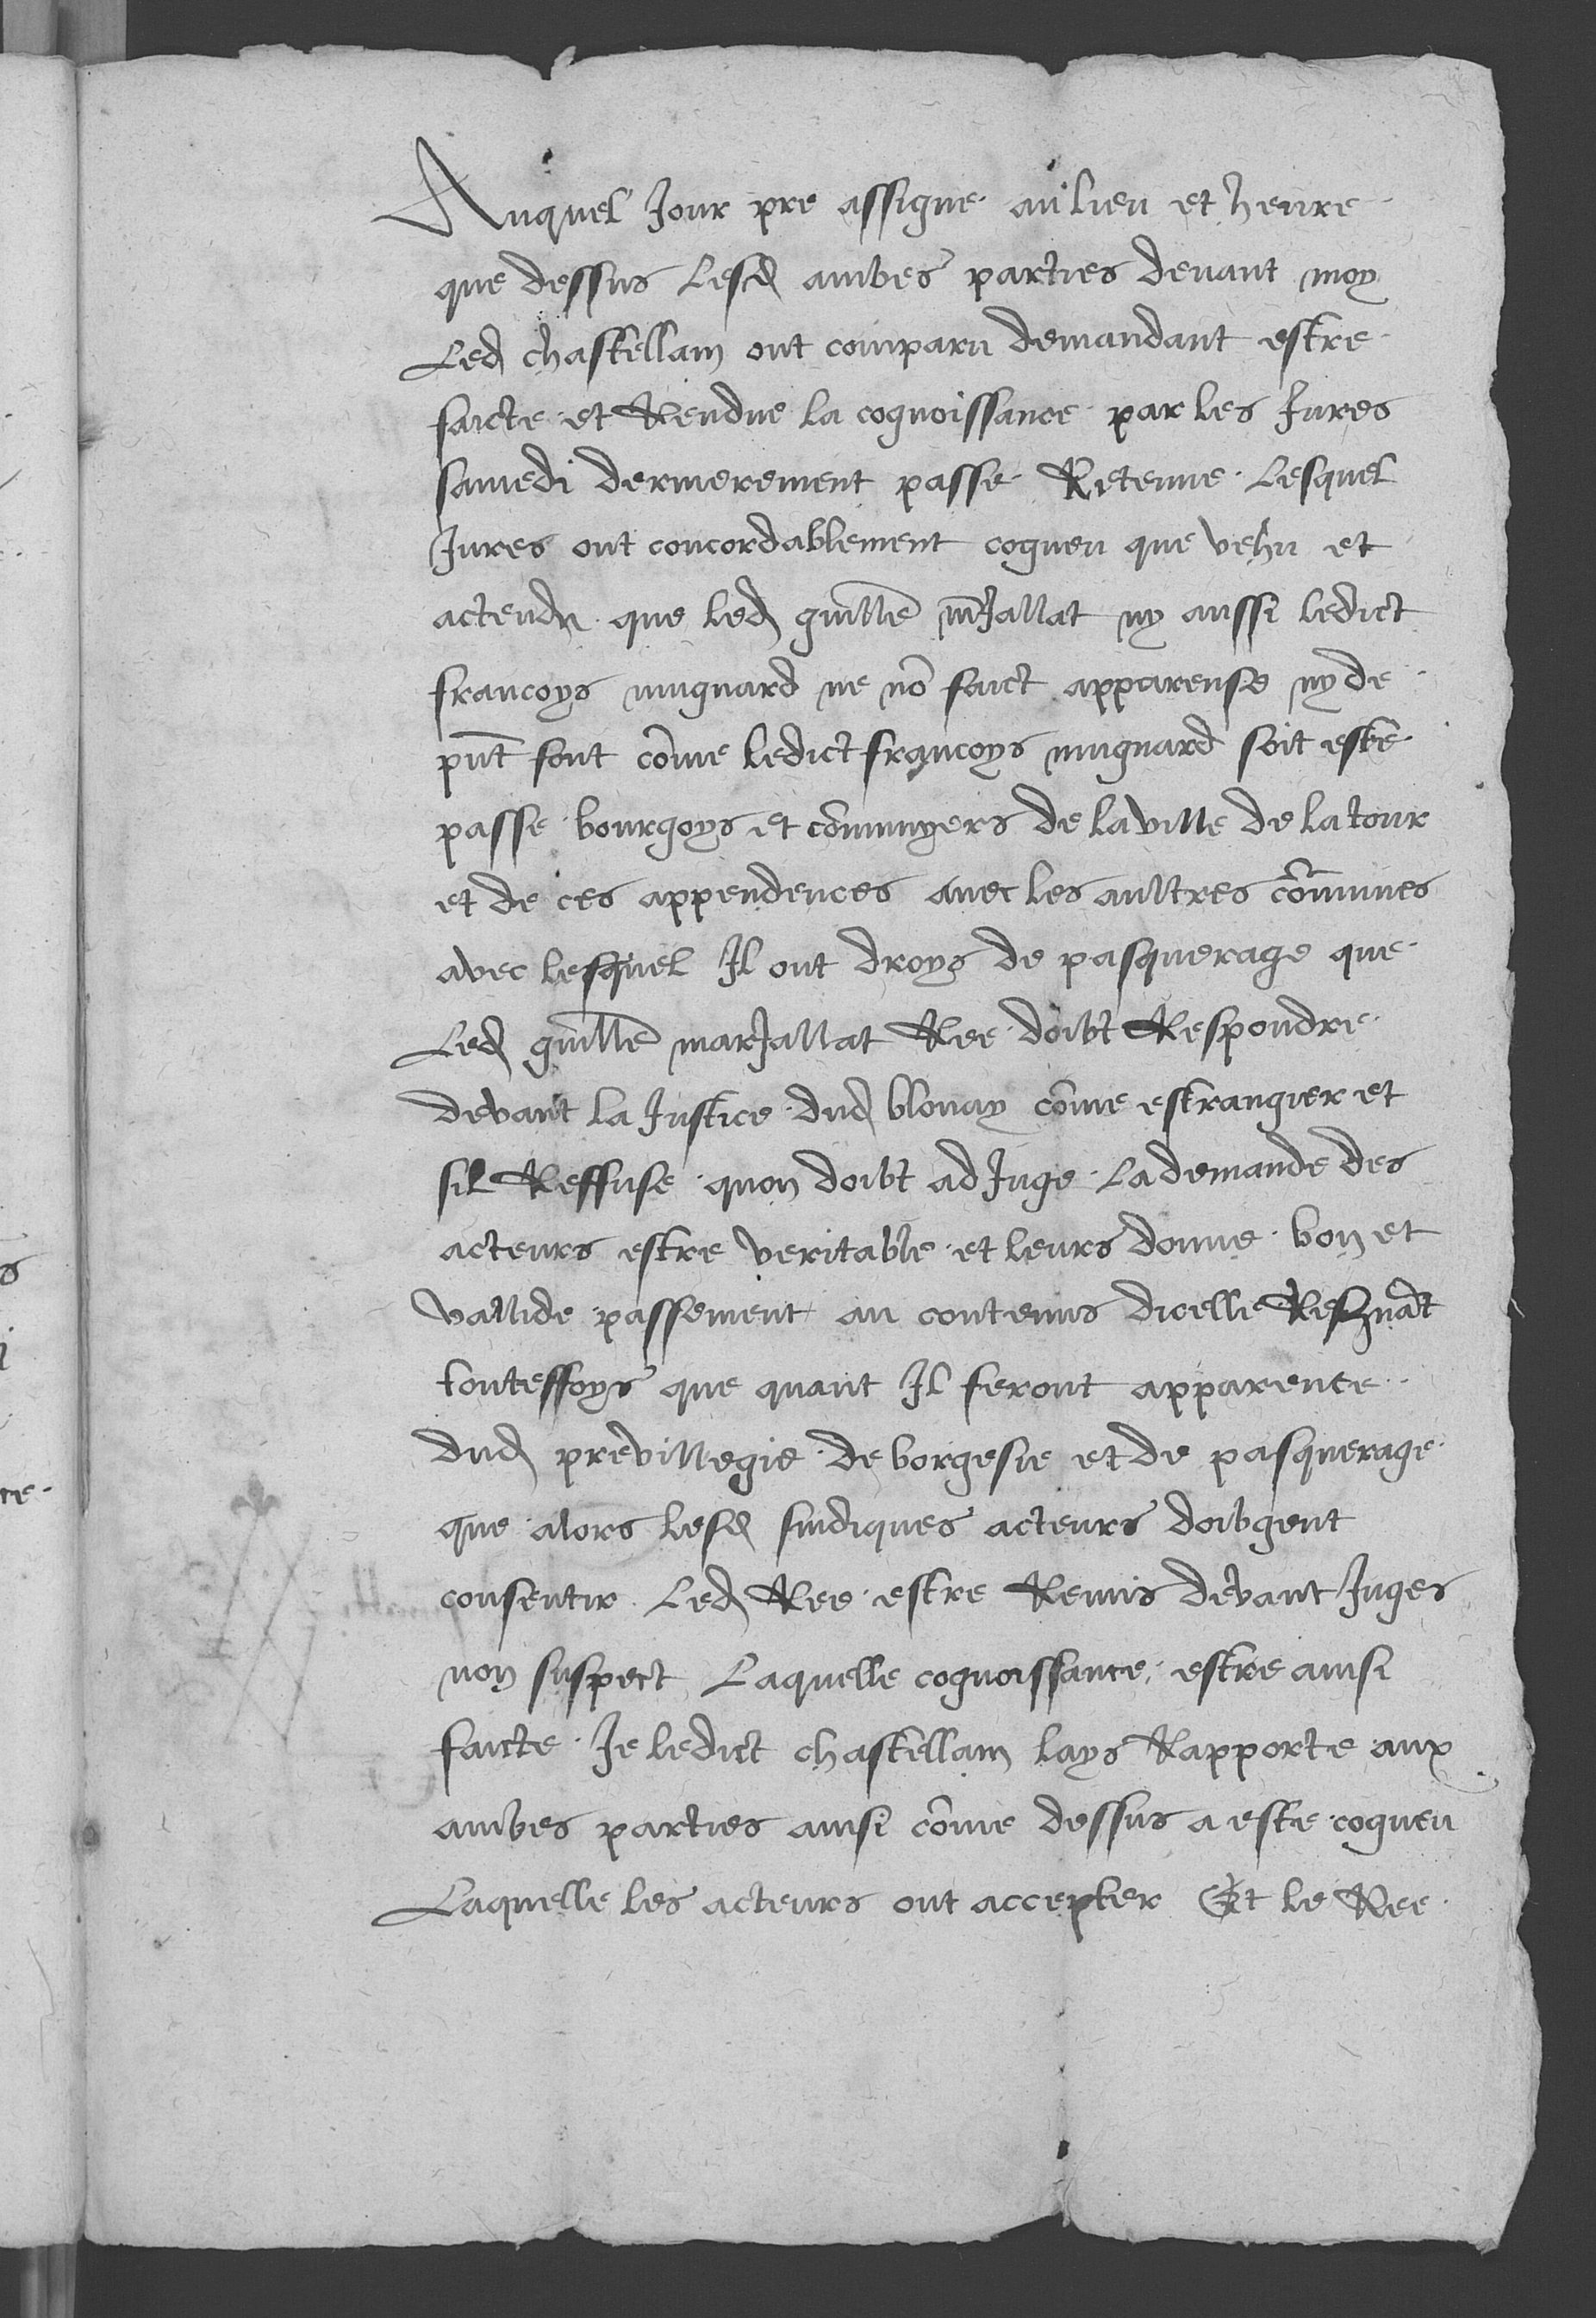 Auquel Jour pre assigne au lieu et heure
que dessus Lesd ambes parties devant moy
Led chastellain ont comparu demandant estre
faicte et Rendue la cognoissance par les Jures
samedi dernierement passe Retenue Lesquel
Jures ont concordablement cogneu que vehu et
actendu que led guille mrJallat ny aussi ledict
francoys mugnard ne no faict apparense ny de
pnt font come ledict francoys mugnard soit este
passe bourgoys et comunyers de la ville de la tour
et de ces appendences avec les aultres comunes
avec lesquel Il ont droys de pasquerage que
Led guille marJallat Ree doibt Respondre
devant la Justice dud blonay come estrangier et
sil Reffuse quon doibt ad Juge La demande des
acteurs estre veritable et leurs donne bon et
vallide passement au contenus dicelle
toutesfoys que quant Il feront apparence
dud previllegie de borgesie et de pasquerage
que alors lesd sindiques acteurs doibgent
consentir Led Ree estre Remis devant Juges
non suspect Laquelle cognoissance estre ainsi
faicte Je ledict chastellain lays Rapporte aux
ambes parties ainsi come dessus a este cogneu
Laquelle les acteurs ont accepter Et le Ree